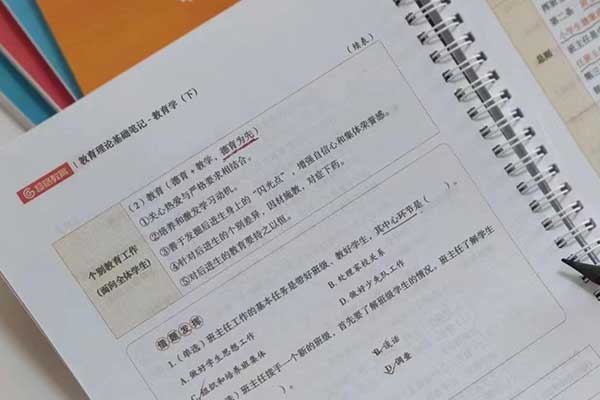 教育理论基础笔记-教育学（下）
（续表）
个别教育工作
（面向全体学生）
（2）教育（德育+教学，德育为先）
①关心热爱与严格要求相结合。
②培养和激发学习动机。
③善于发掘后进生身上的“闪光点”，增强自信心和集体荣誉感。
④针对后进生的个别差异，因材施教，对症下药。
⑤对后进生的教育要持之以恒。
借题发挥
1.（单选）班主任工作的基本任务是带好班级、教好学生，其中心环节是（　）。
A.做好学生思想工作
B.处理家校关系
C.组织和培养班集体
D.做好少先队工作
选）班主任接手一个新的班级，首先要了解班级学生的情况。班主任了解学生
）。
B.谈话
D.调查
第二条
班主任
总则